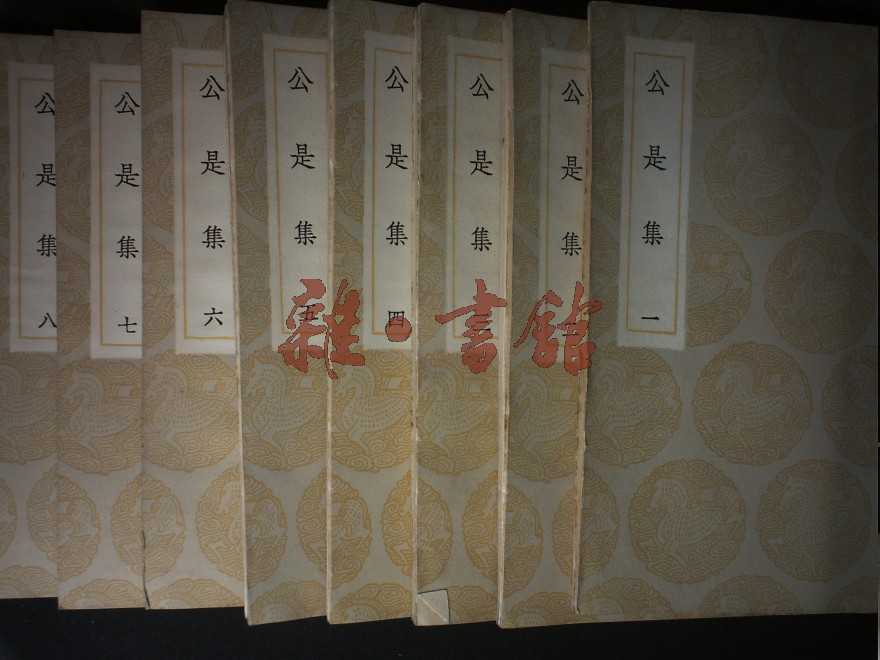 公是集 一
公是集
公是集
公是集 四
公是集 五
公是集 六
公是集 七
公是集 八
雜·書館